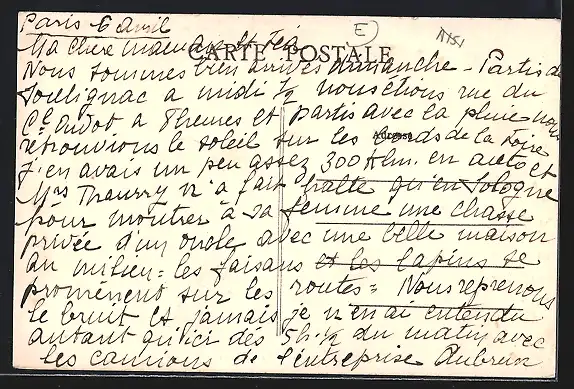 Paris 6 avril
E
A151
Ma chère maman et Féa
CARTE POSTALE
Nous sommes bien arrivés dimanche - Partis de
Soulignac a midi ½ nous étions rue du
Ct Oudot a 8 heures et partis avec la pluie nous
Adresse
retrouvions le soleil sur les bords de la Loire
J'en avais un peu assez 300 klm. en auto et
Mrs Theurry n'a fait halte qu'en Sologne
pour montrer à sa femme une chasse
privée d'un oncle avec une belle maison
au milieu = les faisans et les lapins se
promènent sur les routes = Nous reprenons
le bruit et jamais je n'en ai entendu
autant qu'ici dès 5h.½ du matin avec
les camions de l'entreprise